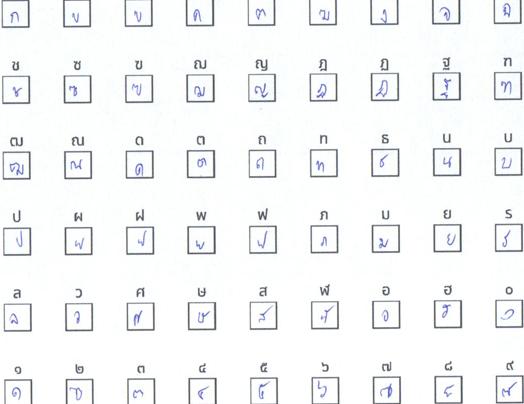 ก ข ข ค ฅ ฆ ง จ ฉ
ช ซ ฃ ฌ ญ ฎ ฏ ฐ ฑ
ช ซ ฃ ฌ ญ ฎ ฏ ฐ ฑ
ฒ ณ ด ต ถ ท ธ น บ
ฒ ณ ด ต ถ ท ธ น บ
ป ผ ฝ พ ฟ ภ ม ย ร
ป ผ ฝ พ ฟ ภ ม ย ร
ล ว ศ ษ ส ฬ อ ฮ ๐
ล ว ศ ษ ส ฬ อ ฮ ๐
๑ ๒ ๓ ๔ ๕ ๖ ๗ ๘ ๙
๑ ๒ ๓ ๔ ๕ ๖ ๗ ๘ ๙